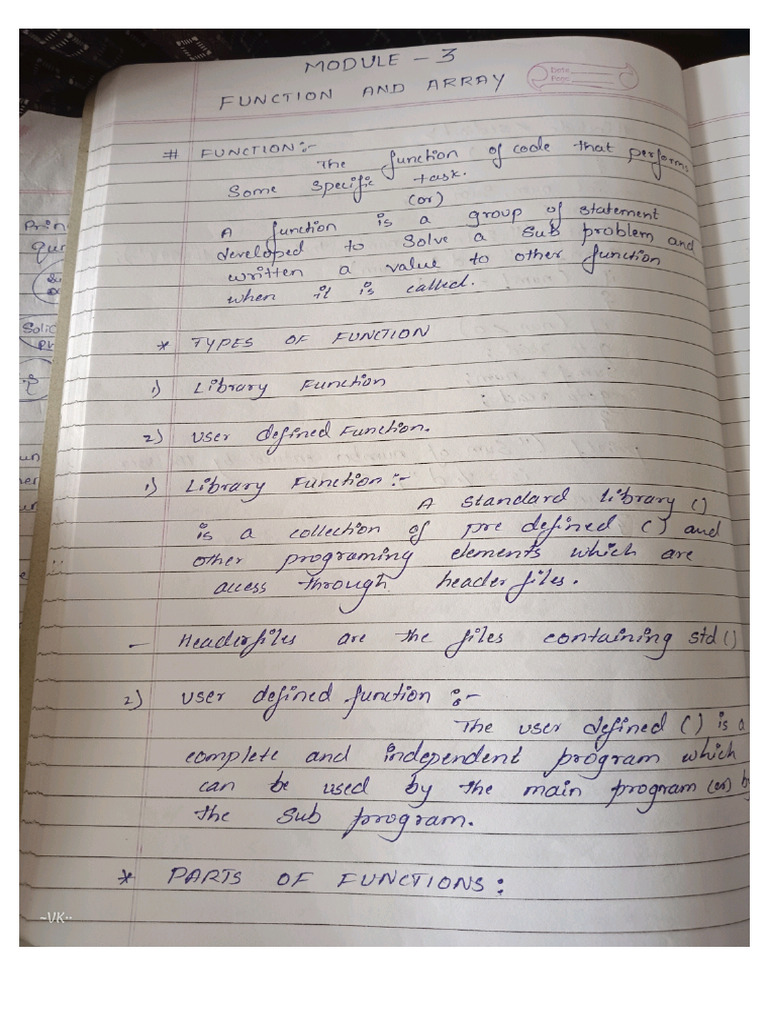 MODULE - 3
Date
Page
FUNCTION AND ARRAY
# FUNCTION:-
The function of code that performs
Some specific task.
(or)
A function is a group of statement
developed to solve a sub problem and
written a value to other function
when it is called.
* TYPES OF FUNCTION
1) Library Function
2) User defined Function.
1) Library Function :-
A standard library ()
is a collection of pre defined () and
other programing elements which are
access through header files.
- Headerfiles are the files containing std ()
2) User defined function :-
The user defined () is a
complete and independent program which
can be used by the main program (or) by
the sub program.
* PARTS OF FUNCTIONS:
~VK..